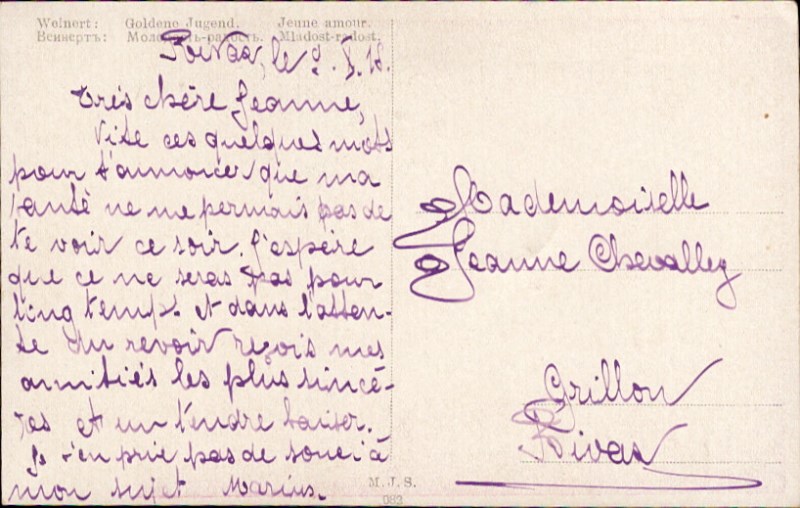 Weinert: Goldene Jugend. Jeune amour.
Веннертъ: Молодость-радость. Mladost-radost.
Rivaz, le 9. X. 18.
Très chère Jeanne,
Vite ces quelques mots
pour t'annoncer que ma
santé ne me permais pas de
te voir ce soir. J'espère
que ce ne seras pas pour
long temps. et dans l'atten-
te du revoir reçois mes
amitiés les plus sincè-
res et un tendre baiser.
Je t'en prie pas de souci à
mon sujet Marius.
Mademoiselle
Jeanne Chevalley
Crillon
Rivaz
M. J. S.
083